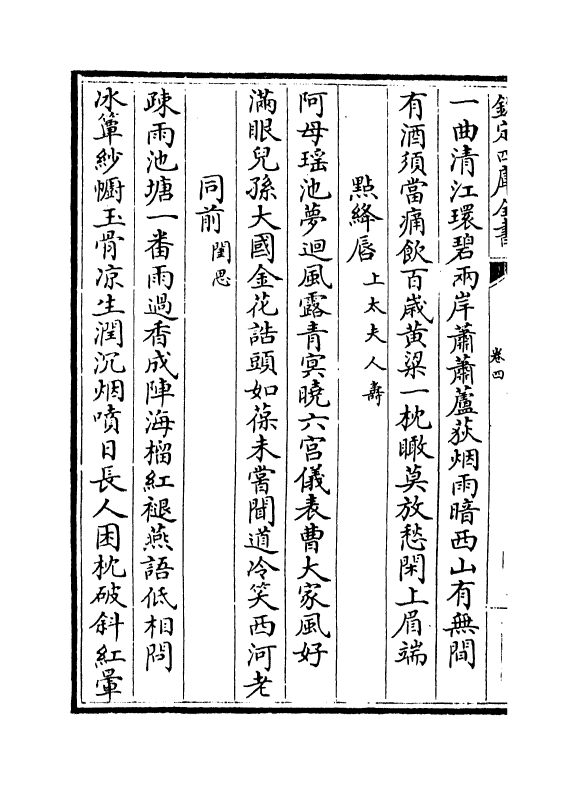 欽定四庫全書
卷四
一曲清江環碧兩岸蕭蕭蘆荻烟雨暗西山有無間
有酒須當痛飲百歲黄粱一枕瞰莫放愁閑上眉端
點絳唇上太夫人壽
阿母瑶池夢迴風露青㝠曉六宫儀表曹大家風好
滿眼兒孫大國金花誥頭如葆未嘗聞道冷笑西河老
同前閨思
疎雨池塘一番雨過香成陣海榴紅褪燕語低相問
冰簟紗㡡玉骨凉生潤沉烟噴日長人困枕破斜紅暈